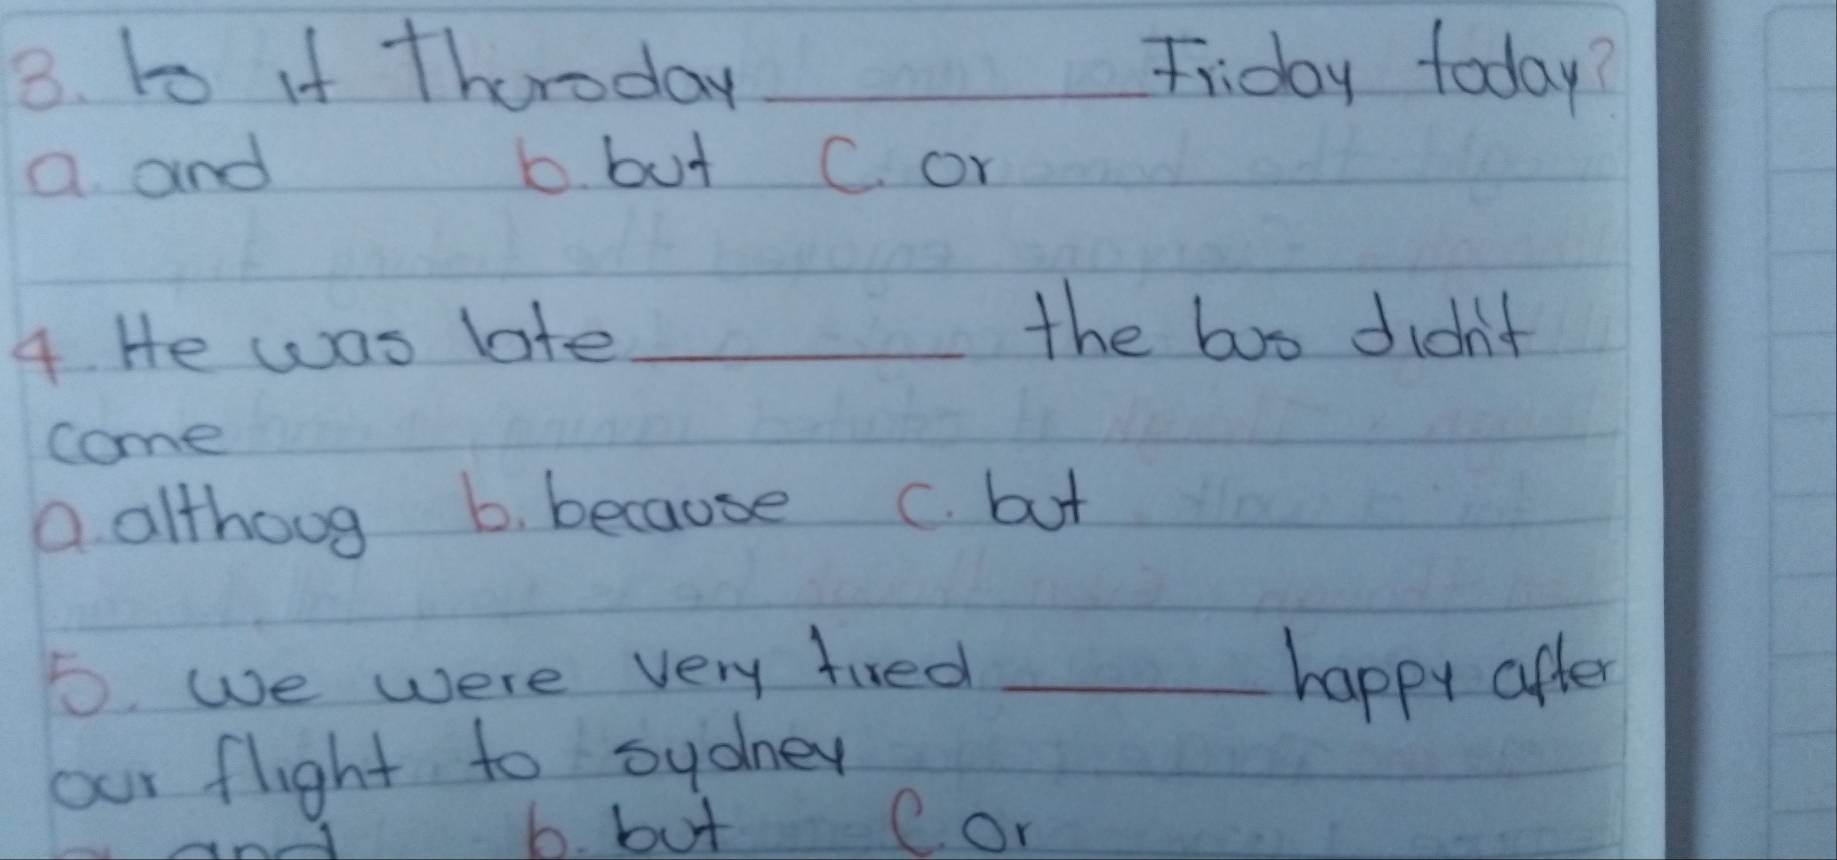 3. Is it Thursday ________ Friday today?
a. and b. but C. or
4. He was late ________ the bus didn't
come
a. althoug b. because c. but
5. we were very tired ________ happy after
our flight to sydney
a. and b. but C. or